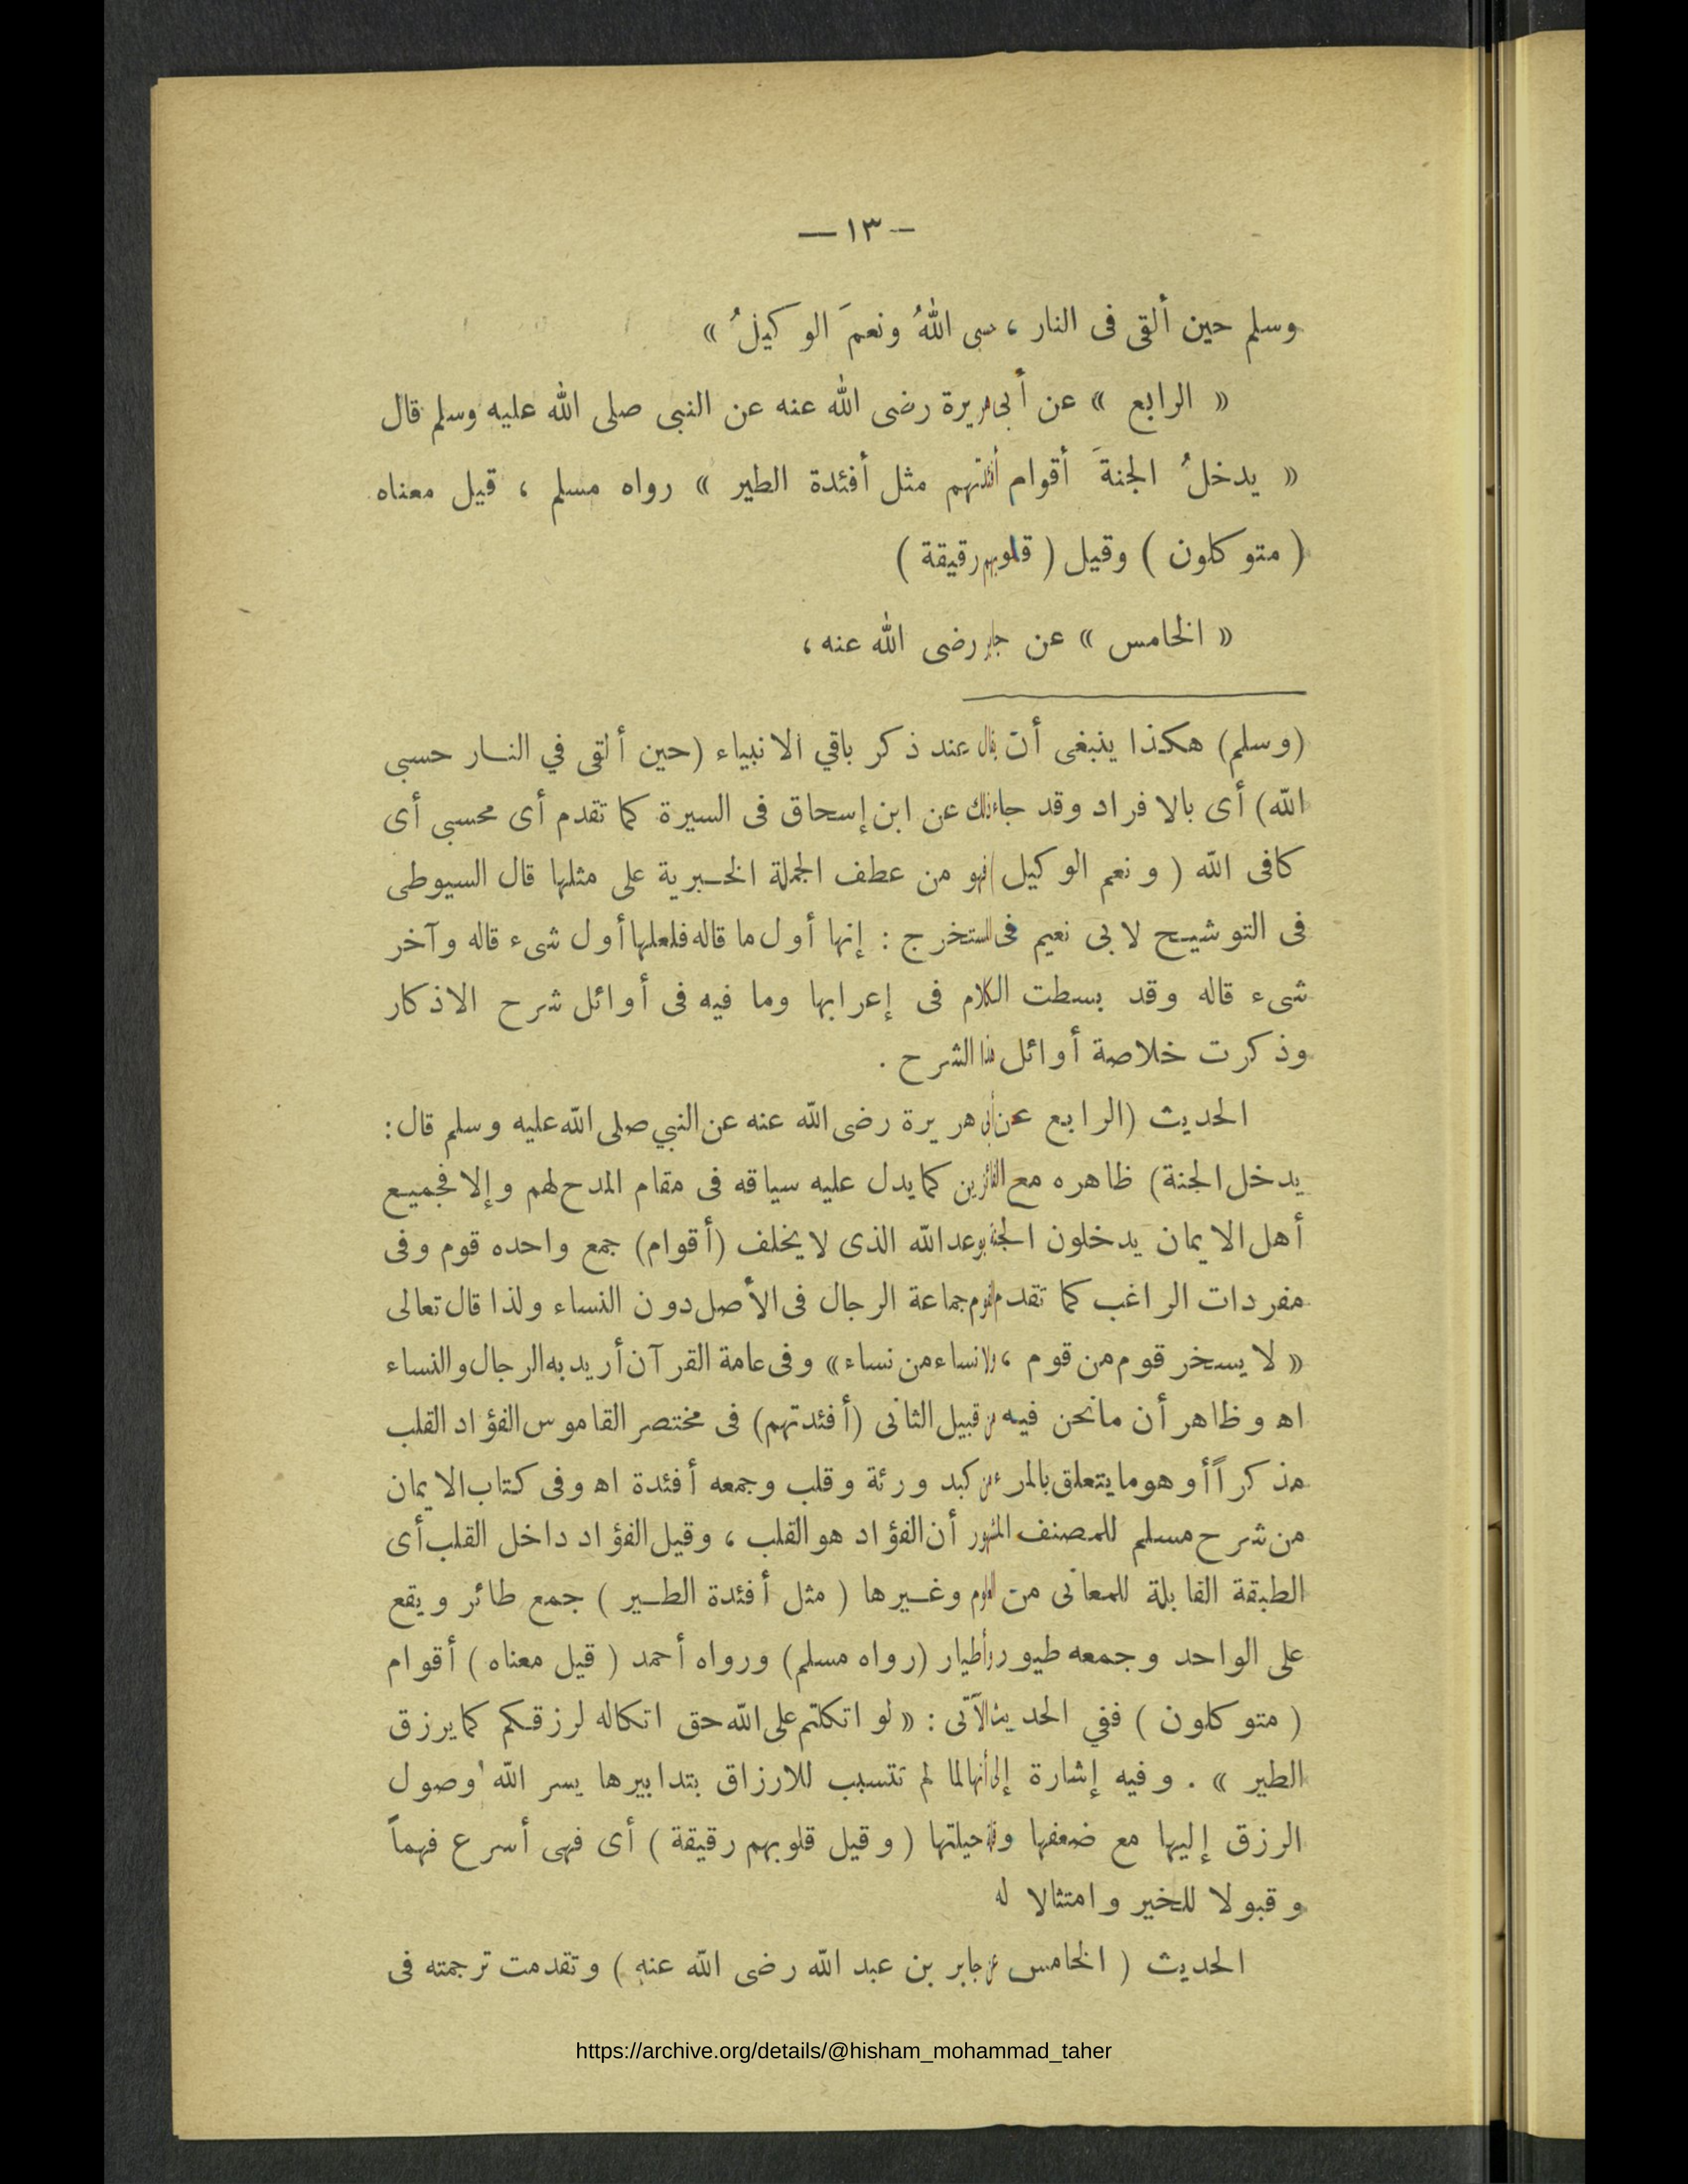 — ١٣ —
وسلم حين ألقى فى النار ، حسبى اللهُ ونعمَ الوكيلُ »
« الرابع » عن أبى هريرة رضى الله عنه عن النبى صلى الله عليه وسلم قال
« يدخلُ الجنةَ أقوام أفئدتهم مثل أفئدة الطير » رواه مسلم ، قيل معناه
( متوكلون ) وقيل ( قلوبهم رقيقة )
« الخامس » عن جابر رضى الله عنه ،
(وسلم) هكذا ينبغى أن يقال عند ذكر باقي الانبياء (حين ألقى في النار حسبى
الله) أى بالافراد وقد جاء ذلك عن ابن إسحاق فى السيرة كما تقدم أى محسبى أى
كافى الله ( ونعم الوكيل ) فهو من عطف الجملة الخبرية على مثلها قال السيوطى
فى التوشيح لابى نعيم فى المستخرج : إنها أول ما قاله فلعلها أول شىء قاله وآخر
شىء قاله وقد بسطت الكلام فى إعرابها وما فيه فى أوائل شرح الاذكار
وذكرت خلاصة أوائل هذا الشرح .
الحديث (الرابع عن أبى هريرة رضى الله عنه عن النبي صلى الله عليه وسلم قال :
يدخل الجنة) ظاهره مع الفائزين كما يدل عليه سياقه فى مقام المدح لهم وإلا فجميع
أهل الايمان يدخلون الجنة بوعد الله الذى لا يخلف (أقوام) جمع واحده قوم وفى
مفردات الراغب كما تقدم القوم جماعة الرجال فى الأصل دون النساء ولذا قال تعالى
« لا يسخر قوم من قوم ، ولا نساء من نساء» وفى عامة القرآن أريد به الرجال والنساء
اه وظاهر أن مانحن فيه من قبيل الثانى (أفئدتهم) فى مختصر القاموس الفؤاد القلب
مذكراً أو هو ما يتعلق بالمرء من كبد ورئة وقلب وجمعه أفئدة اه وفى كتاب الايمان
من شرح مسلم للمصنف المشهور أن الفؤاد هو القلب ، وقيل الفؤاد داخل القلب أى
الطبقة القابلة للمعانى من العلوم وغيرها ( مثل أفئدة الطير ) جمع طائر ويقع
على الواحد وجمعه طيور وأطيار (رواه مسلم) ورواه أحمد ( قيل معناه ) أقوام
( متوكلون ) ففي الحديث الآتى : « لو اتكلتم على الله حق اتكاله لرزقكم كما يرزق
الطير » . وفيه إشارة إلى أنها لما لم تتسبب للارزاق بتدابيرها يسر الله وصول
الرزق إليها مع ضعفها وقلة حيلتها ( وقيل قلوبهم رقيقة ) أى فهى أسرع فهماً
وقبولا للخير وامتثالا له
الحديث ( الخامس عن جابر بن عبد الله رضى الله عنه ) وتقدمت ترجمته فى
https://archive.org/details/@hisham_mohammad_taher